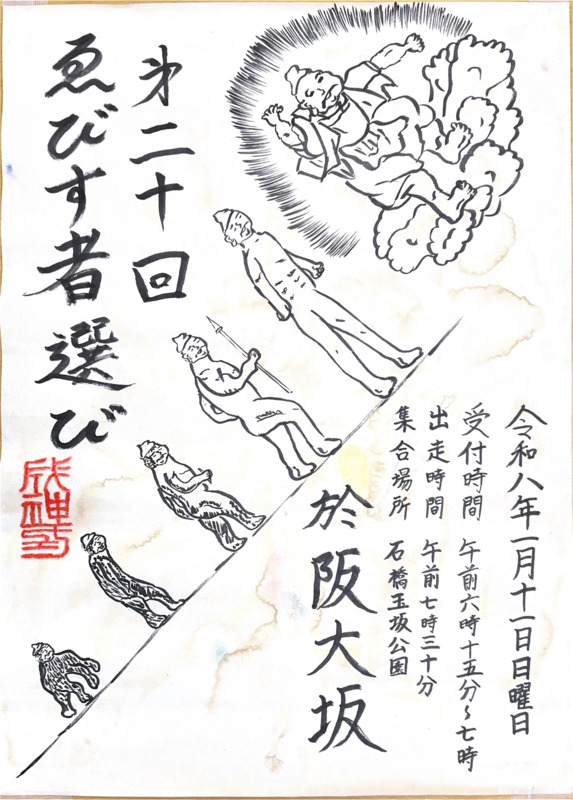 第二十回
ゑびす者選び
於阪大坂
令和八年一月十一日日曜日
受付時間 午前六時十五分~七時
出走時間 午前七時三十分
集合場所 石橋玉坂公園